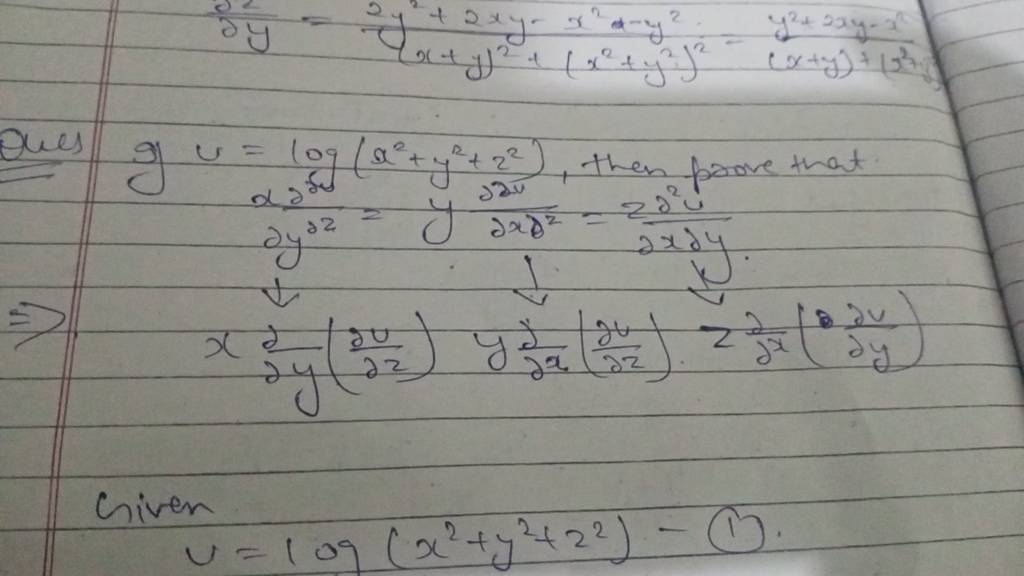 ∂z/∂y = 2y² + 2xy - x² - y² / (x+y)² + (x²+y²)² = y² + 2xy - x² / (x+y) +
Ques If u = log (x² + y² + z²), then prove that
x ∂²u/∂y∂z = y ∂²u/∂x∂z = z ∂²u/∂x∂y.
⇒ x ∂/∂y (∂u/∂z) y ∂/∂x (∂u/∂z). z ∂/∂x (∂u/∂y)
Given
u = log (x² + y² + z²) - ①.